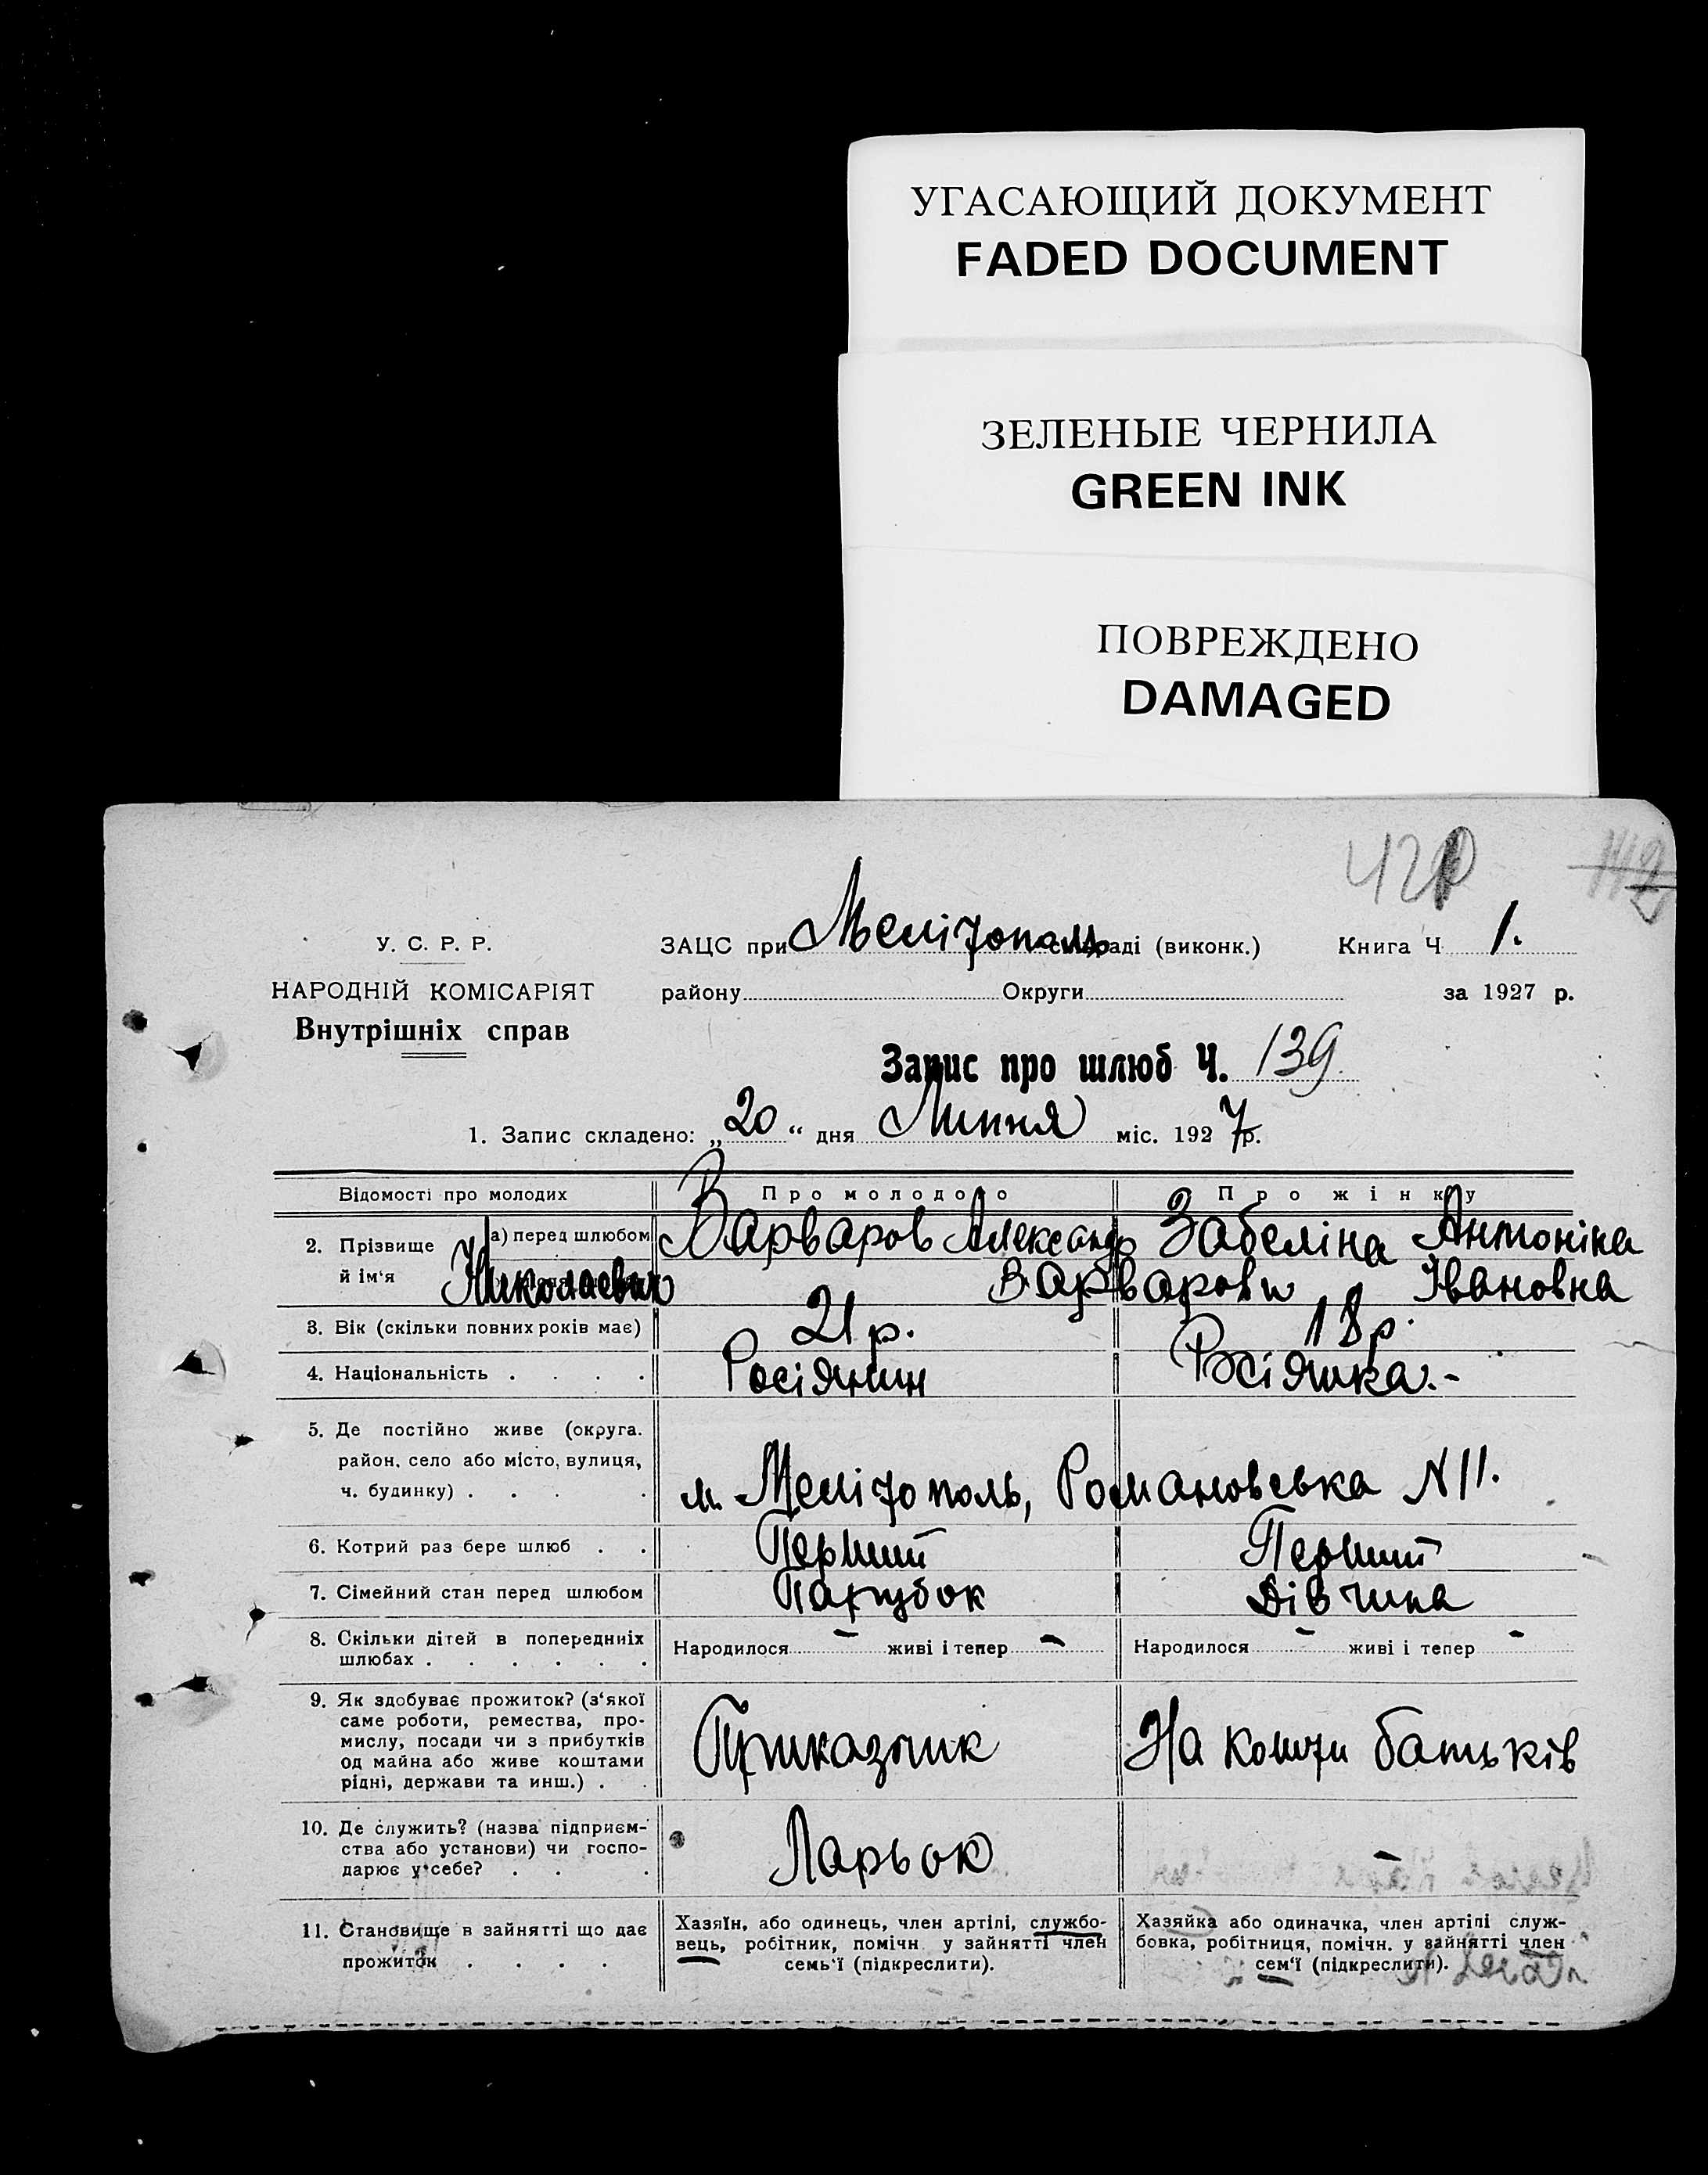 УГАСАЮЩИЙ ДОКУМЕНТ
FADED DOCUMENT
ЗЕЛЕНЫЕ ЧЕРНИЛА
GREEN INK
ПОВРЕЖДЕНО
DAMAGED
У. С. Р. Р.
НАРОДНІЙ КОМІСАРІЯТ
Внутрішніх справ
ЗАЦС при Мелітополь раді (виконк.) Книга Ч 1.
району Округи за 1927 р.
Запис про шлюб Ч. 139
1. Запис складено: „20“ дня Липня міс. 1927 р.
Відомості про молодих Про молодого Про жінку
2. Прізвище й ім‘я а) перед шлюбом Варваров Александр Забеліна Антоніна
Николаевич Варваровы Івановна
3. Вік (скільки повних років має) 21 р. 18 р.
4. Національність . . . . Росіянин Росіянка.-
5. Де постійно живе (округа.
район, село або місто, вулиця,
ч. будинку) . . . . м. Мелітополь, Романовська N 11.
6. Котрий раз бере шлюб . . Перший Перший
7. Сімейний стан перед шлюбом Парубок Дівчина
8. Скільки дітей в попередніх
шлюбах . . . . . . Народилося - живі і тепер - Народилося - живі і тепер -
9. Як здобуває прожиток? (з‘якої
саме роботи, ремества, про-
мислу, посади чи з прибутків
од майна або живе коштами
рідні, держави та инш.) . . Приказчик На кошти батьків
10. Де служить? (назва підприєм-
ства або установи) чи госпо-
дарює у себе? . . . Ларьок -
11. Становище в зайнятті що дає
прожиток . . . .
Хазяїн, або одинець, член артілі, службо-
вець, робітник, помічн. у зайнятті член
семь‘ї (підкреслити).
Хазяйка або одиначка, член артілі служ-
бовка, робітниця, помічн. у зайнятті член
сем‘ї (підкреслити).